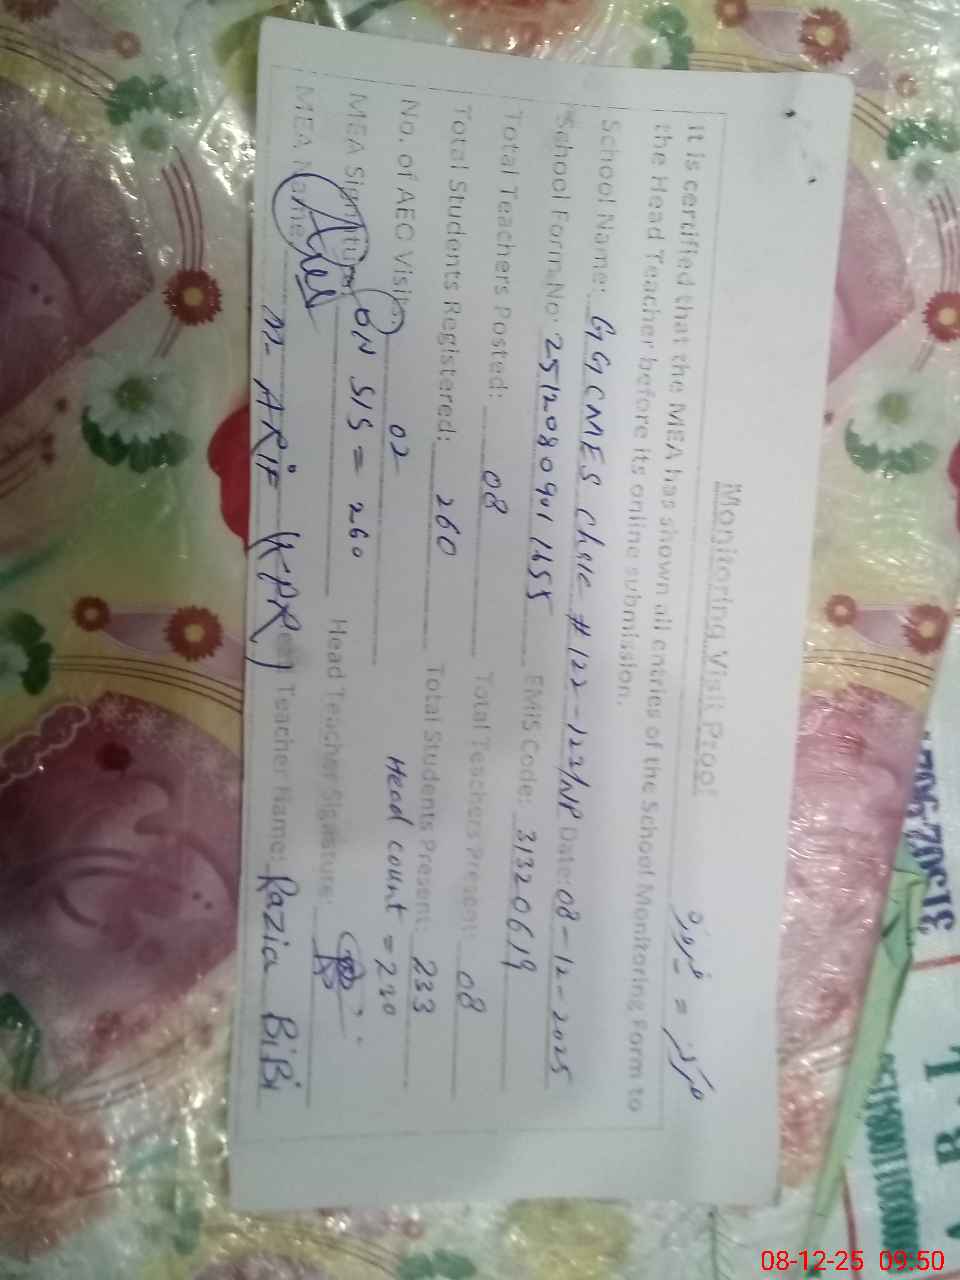 Monitoring Visit Proof
مرکز = فیروزہ
It is certified that the MEA has shown all entries of the School Monitoring Form to
the Head Teacher before its online submission.
School Name: GGCMES Chak # 122-123/NP Date: 08-12-2025
School Form No: 2512080901455 EMIS Code: 31320619
Total Teachers Posted: 08 Total Teachers Present: 08
Total Students Registered: 260 Total Students Present: 233
No. of AEO Visit: 02 Head count = 230
ON SIS = 260
MEA Signature Head Teacher Signature:
MEA Name M. ARIF (KPR) Teacher Name: Razia BiBi
08-12-25 09:50